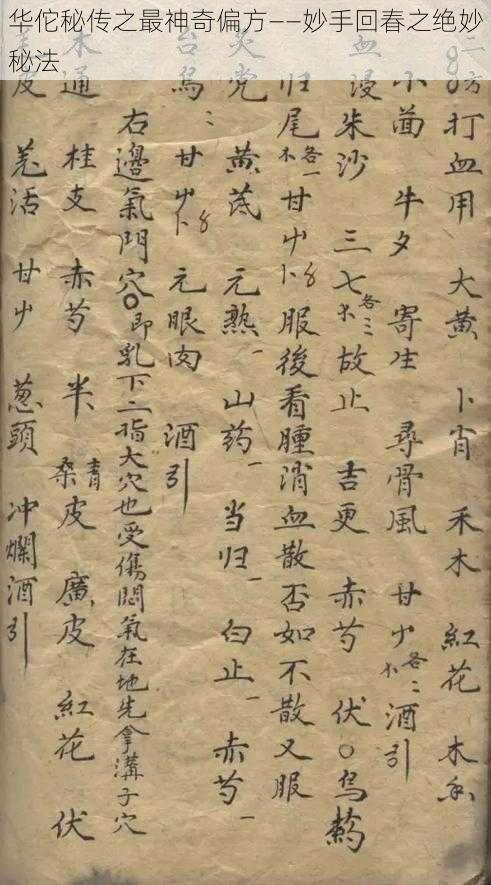 华佗秘传之最神奇偏方——妙手回春之绝妙
秘法
二方打血用 大黄 卜肖 禾木 紅花 木香
小茴 牛夕 寄生 尋骨風 甘屮 各二 酒引
血浸朱沙 三七 各三 故止 吉更 赤芍 伏 乌藥
归尾 各一 甘屮 服後看腫消血散否如不散又服
炙党 黄芪 元熟 山药 当归 白止 赤芍
台乌 甘屮 元眼肉 酒引
右邊氣門穴 即乳下二指大穴也受傷悶氣在地先拿溝子穴
木通 桂支 赤芍 半 青桑皮 廣皮 紅花 伏
皮 羌活 甘屮 葱頭 冲爛酒引